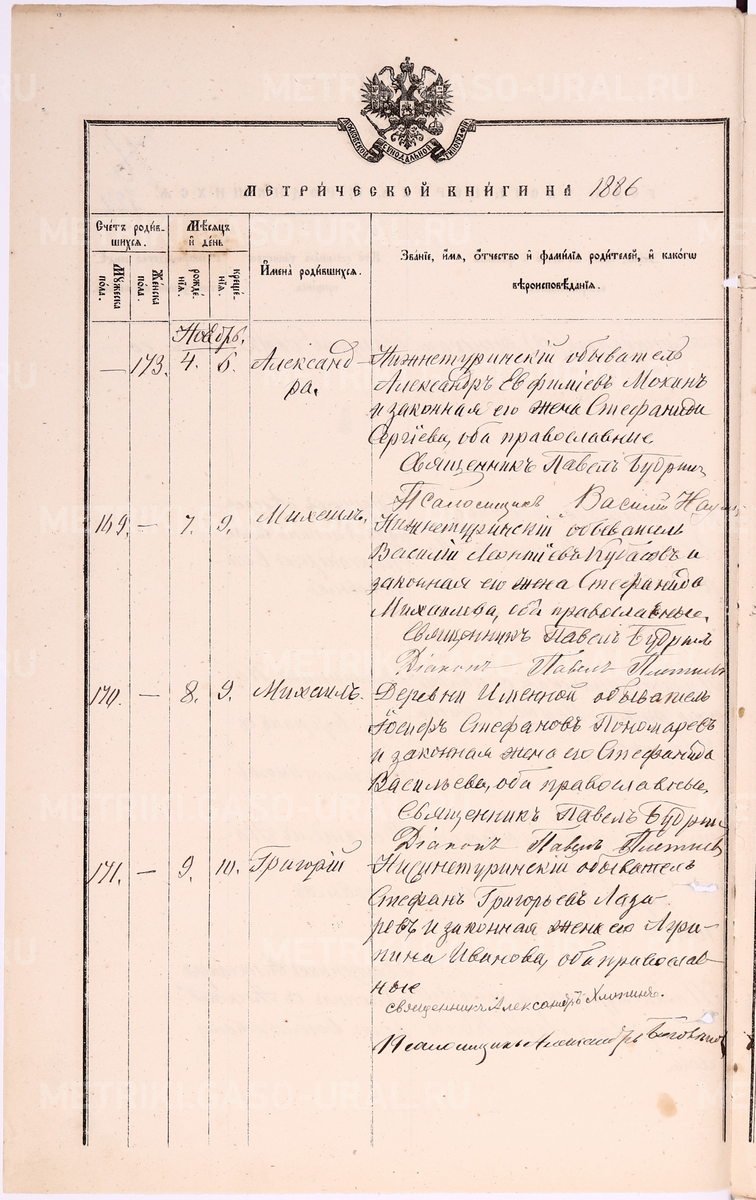 МОСКОВСКОЙ СѴНОДАЛЬНОЙ ТИПОГРАФІИ
МЕТРИЧЕСКОЙ КНИГИ НА 1886
Счетъ родив-
шихся.
Мѣсяцъ
и день
Имена родившихся.
Званіе, имя, отчество и фамилія родителей, и какогѡ
вѣроисповѣданія.
Мужеска
пола.
Женска
пола.
рожде-
нія.
креще-
нія.
Ноябрь.
— 173. 4. 6. Александ-
ра.
Нижнетуринскій обыватель
Александръ Евфиміевъ Мокинъ
и законная его жена Стефанида
Сергіева, оба православные
Священникъ Павелъ Бубринъ
Псаломщикъ Василій
169. — 7. 9. Михаилъ.
Нижнетуринскій обыватель
Василій Леонтіевъ и
законная его жена Стефанида
Михаилова, оба православные.
Священникъ Павелъ Бубринъ
Діаконъ Павелъ
170. — 8. 9. Михаилъ.
Деревни Именной обыватель
Іосифъ Стефановъ Пономаревъ
и законная жена его Стефанида
Васильева, оба православные,
Священникъ Павелъ Бубринъ
Діаконъ Павелъ
171. — 9. 10. Григорій
Нижнетуринскій обыватель
Стефанъ Григорьевъ Лаза-
ревъ и законная жена его Агри-
пина Иванова, оба православ-
ные
Священникъ Александръ Хлопинъ.
Псаломщикъ Александръ
METRIKI.GASO-URAL.RU